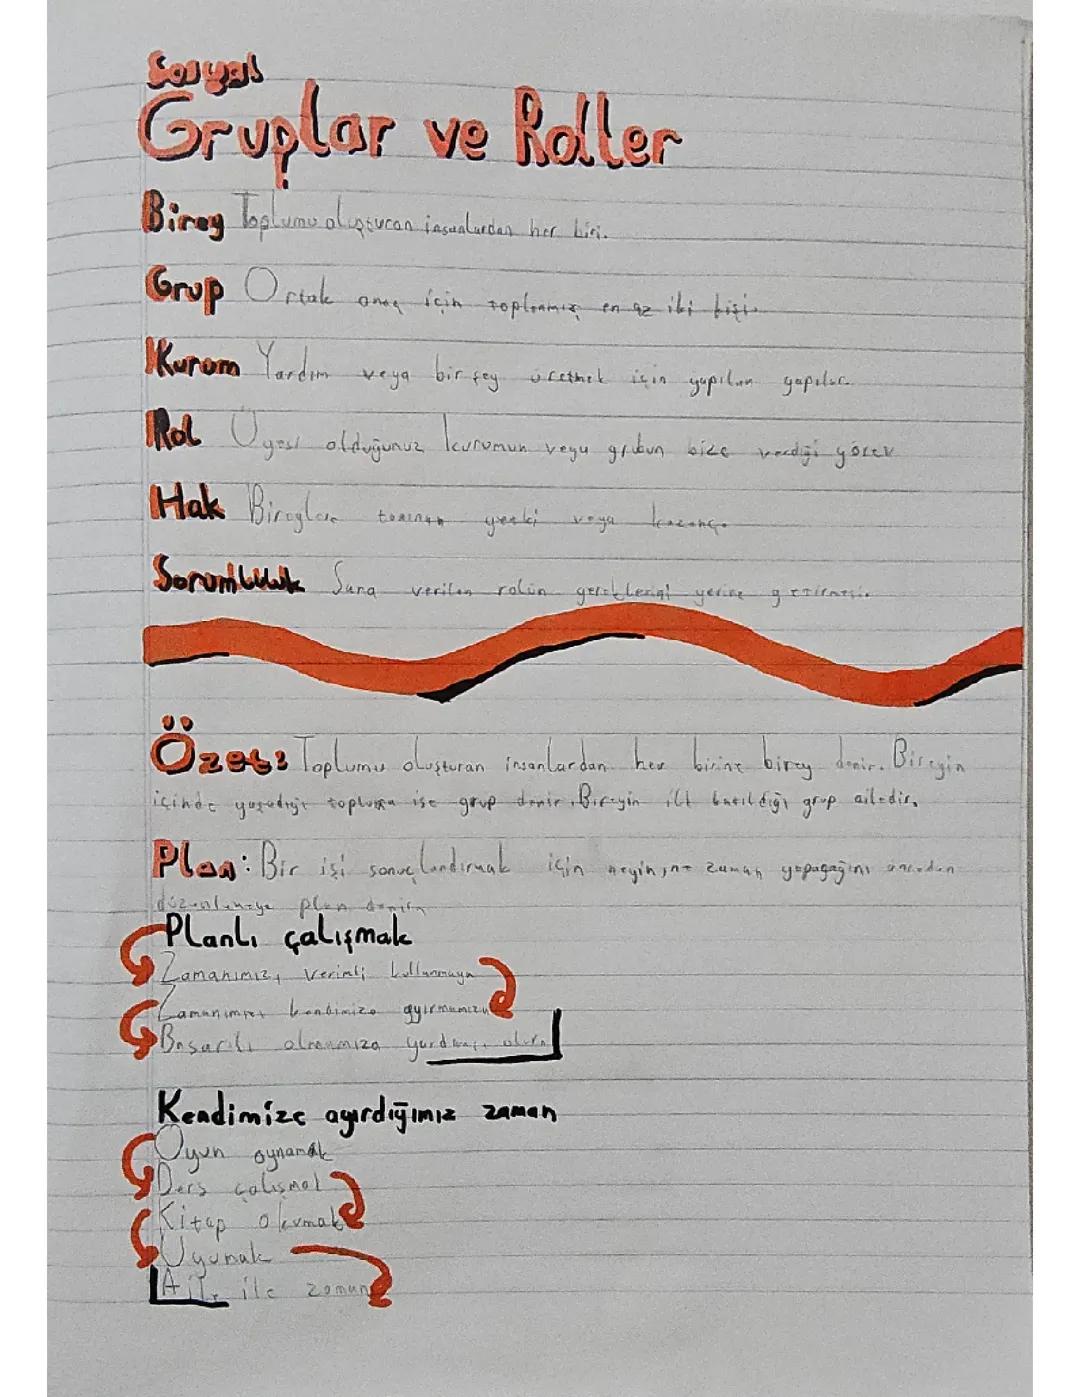 Sosyal
Gruplar ve Roller
Birey Toplumu oluşturan insanlardan her biri.
Grup Ortak amaç için toplanmış en az iki kişi.
Kurum Yardım veya bir şey üretmek için yapılan yapılar.
Rol Üyesi olduğunuz kurumun veya grubun bize verdiği görev
Hak Bireylere tanınan yetki veya kazanç.
Sorumluluk Sana verilen rolün gereklerini yerine getirmesi.
Özet: Toplumu oluşturan insanlardan her birine birey denir. Bireyin
içinde yaşadığı topluma ise grup denir. Bireyin ilk katıldığı grup ailedir.
Plan: Bir işi sonuçlandırmak için neyin, ne zaman yapacağını önceden
düzenlemeye plan denir.
Planlı çalışmak
Zamanımızı verimli kullanmaya
Zamanımızı kendimize ayırmamıza
Başarılı olmamıza yardımcı olur.
Kendimize ayırdığımız zaman
Oyun oynamak
Ders çalışmak
Kitap okumak
Uyumak
Aile ile zaman